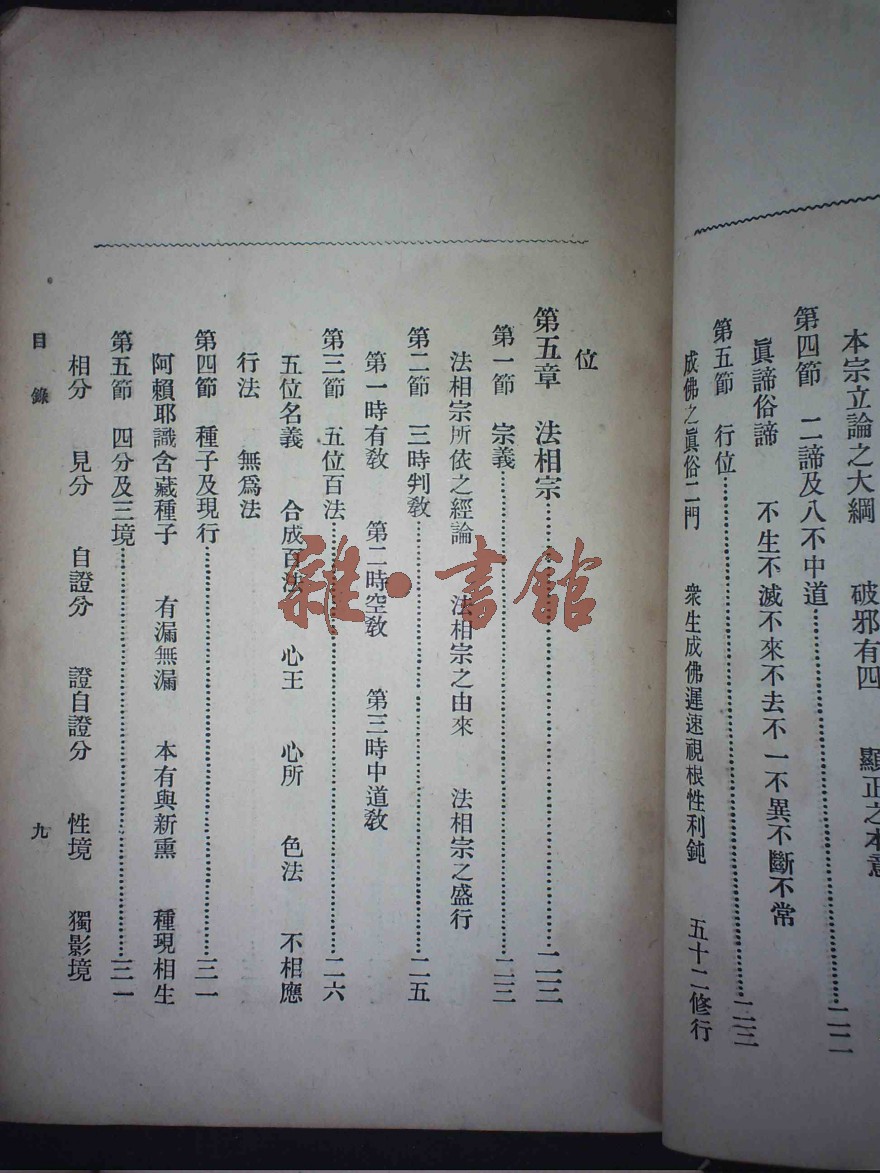 本宗立論之大綱　破邪有四　顯正之本意
第四節　二諦及八不中道……二二
眞諦俗諦　不生不滅不來不去不一不異不斷不常
第五節　行位……二三
成佛之眞俗二門　衆生成佛遲速視根性利鈍　五十二修行
位
第五章　法相宗……二三
第一節　宗義……二三
法相宗所依之經論　法相宗之由來　法相宗之盛行
第二節　三時判教……二五
第一時有教　第二時空教　第三時中道教
第三節　五位百法……二六
五位名義　合成百法　心王　心所　色法　不相應
行法　無爲法
第四節　種子及現行……三一
阿賴耶識含藏種子　有漏無漏　本有與新熏　種現相生
第五節　四分及三境……三一
相分　見分　自證分　證自證分　性境　獨影境
目錄　九
雜·書館